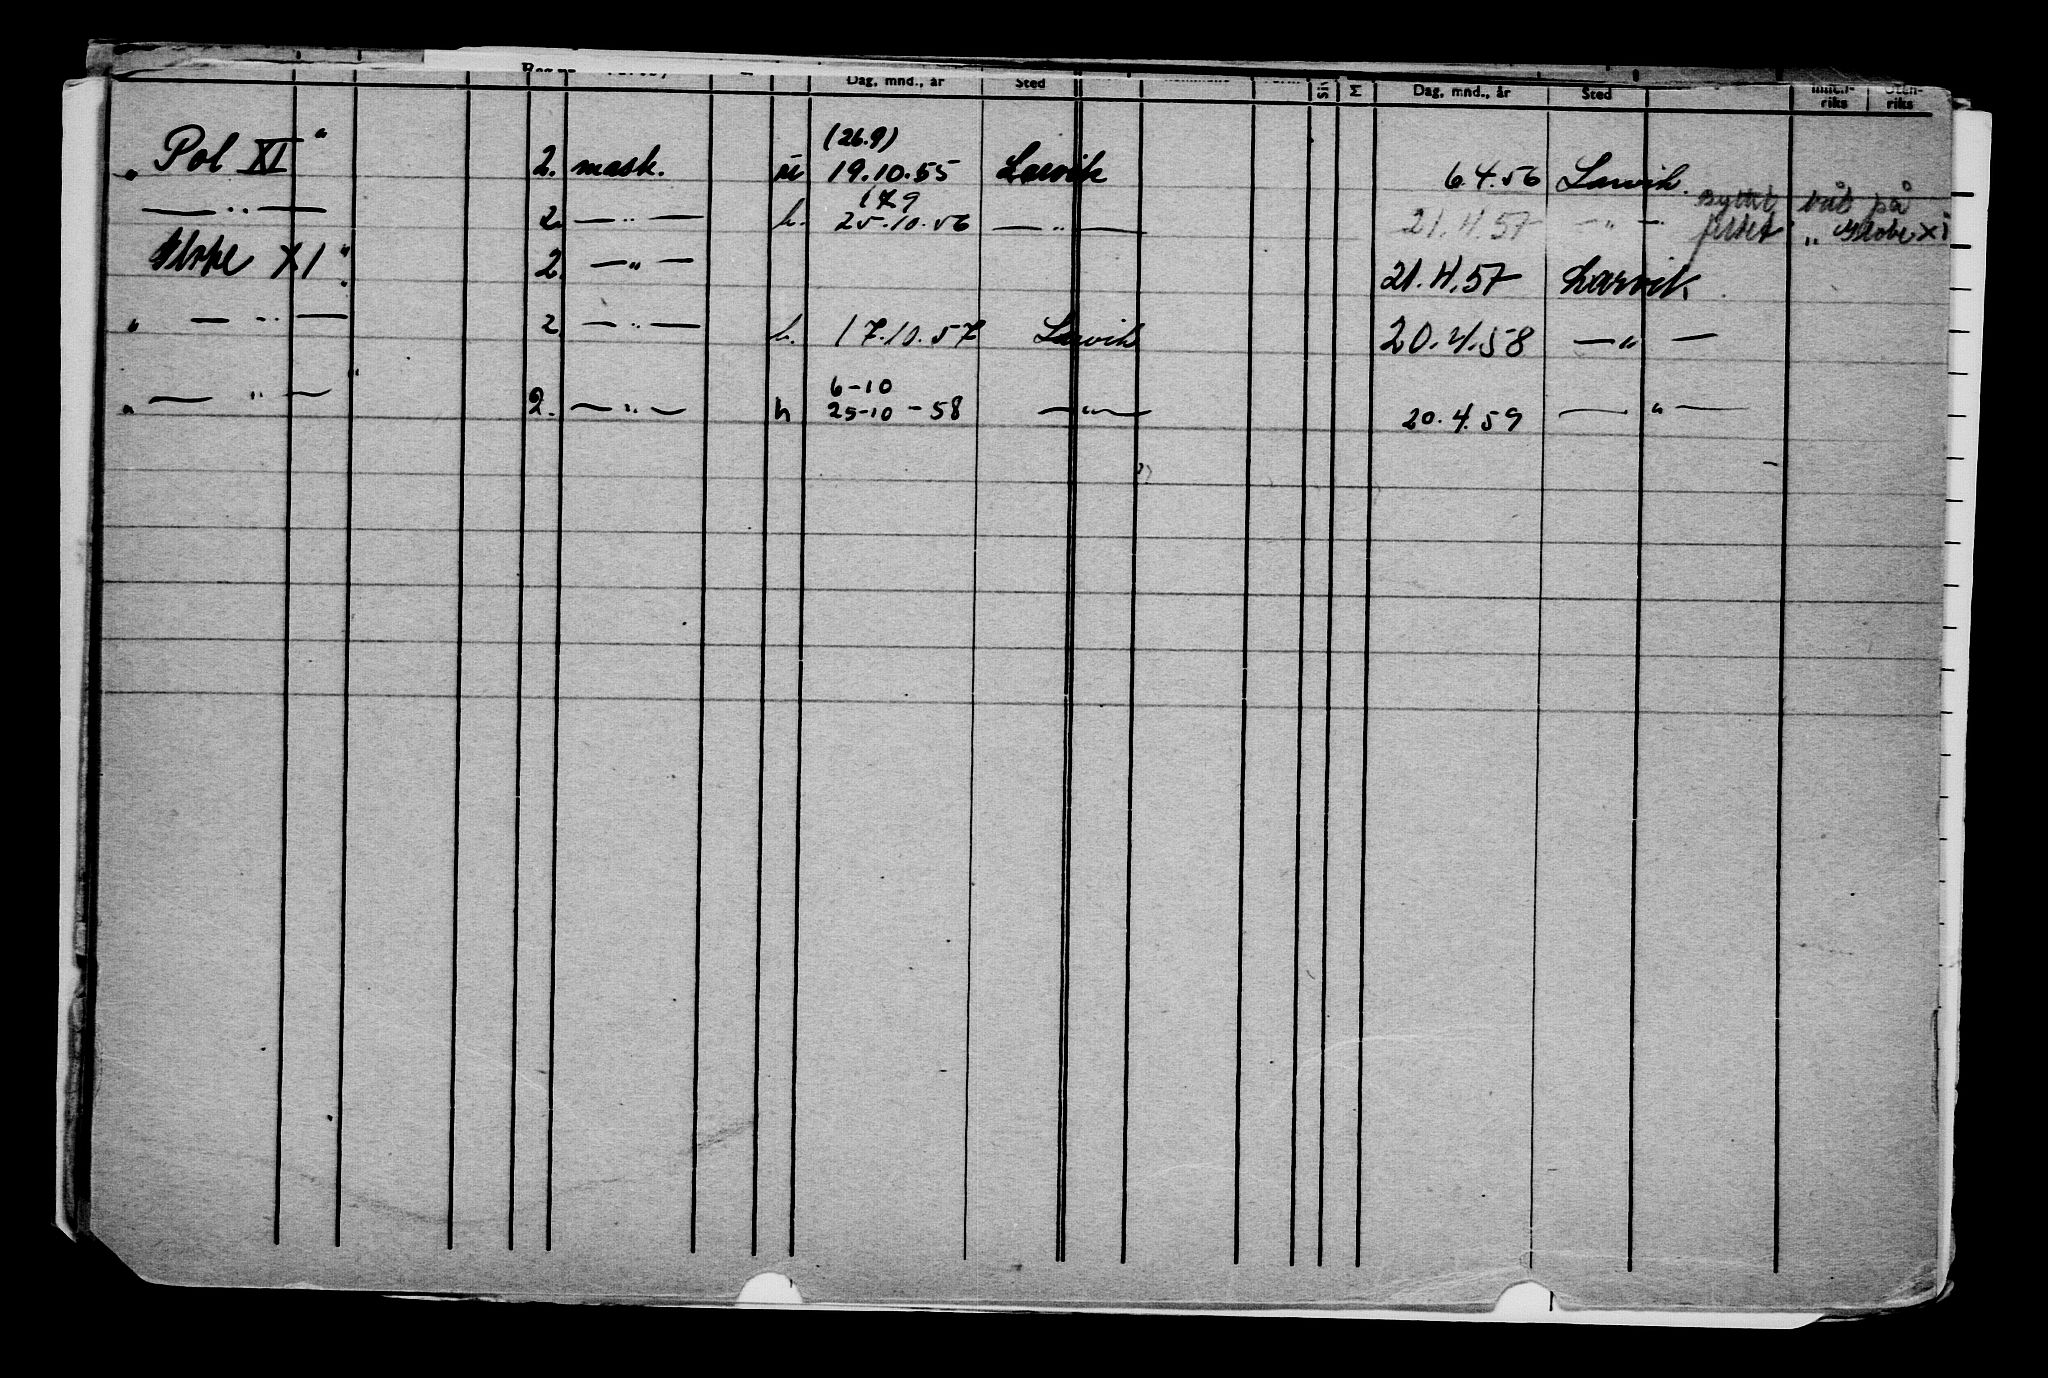 Dag, mnd., år Sted M Dag, mnd., år Sted riks riks
(26.9)
„ Pol XI “ 2. mask. 19.10.55 Larvik 6.4.56 Larvik.
17.9 byttet båt på
— „ — 2. — „ — h. 25.10.56 — „ — 21.4.57 — „ — feltet „ Globe XI
Globe XI “ 2. — „ — 21.4.57 Larvik
„ — „ — 2. — „ — h. 17.10.57 Larvik 20.4.58 — „ —
6-10
„ — „ — “ 2. — „ — h 25-10-58 — „ — 20.4.59 — „ —